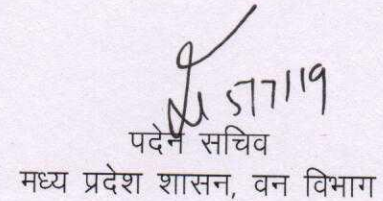 5/7/19
पदेन सचिव
मध्य प्रदेश शासन, वन विभाग